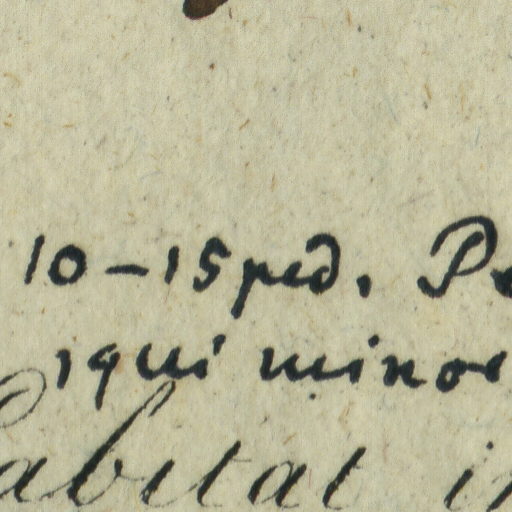 10-15 ped. P
qui mino
abitat i